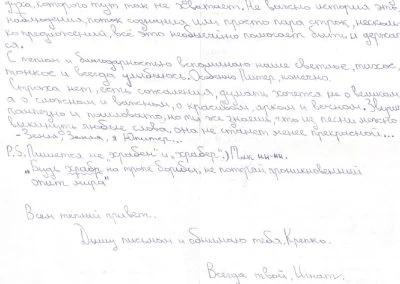 духа, которого тут так не хватает. Не важно история это,
наблюдения, поток сознания или просто пара строк, несколь-
ко предложений, всё это необычайно помогает быть и держать-
ся.
С теплом и благодарностью вспоминаю наше светлое, тихое,
тонкое и всегда улыбаюсь. Особенно Питер, конечно.
Страха нет, есть сожаления, думать хочется не о великом,
а о сложном и важном, о красивом, ярком и вечном. Звучит
и но ты же знаешь, что из песни можно
выкинуть любые слова, она не станет менее прекрасной...
- Земля, Земля, я Юпитер...
P.S. Пишется не "храбен" и "храбер".) Пик ни-ни.
„Будь храбр на тропе борьбы, не потеряй проникновенний
этит мира"
Всем тёплый привет.
Дышу письмом и обнимаю тебя, Крепко.
Всегда твой, Игнат.